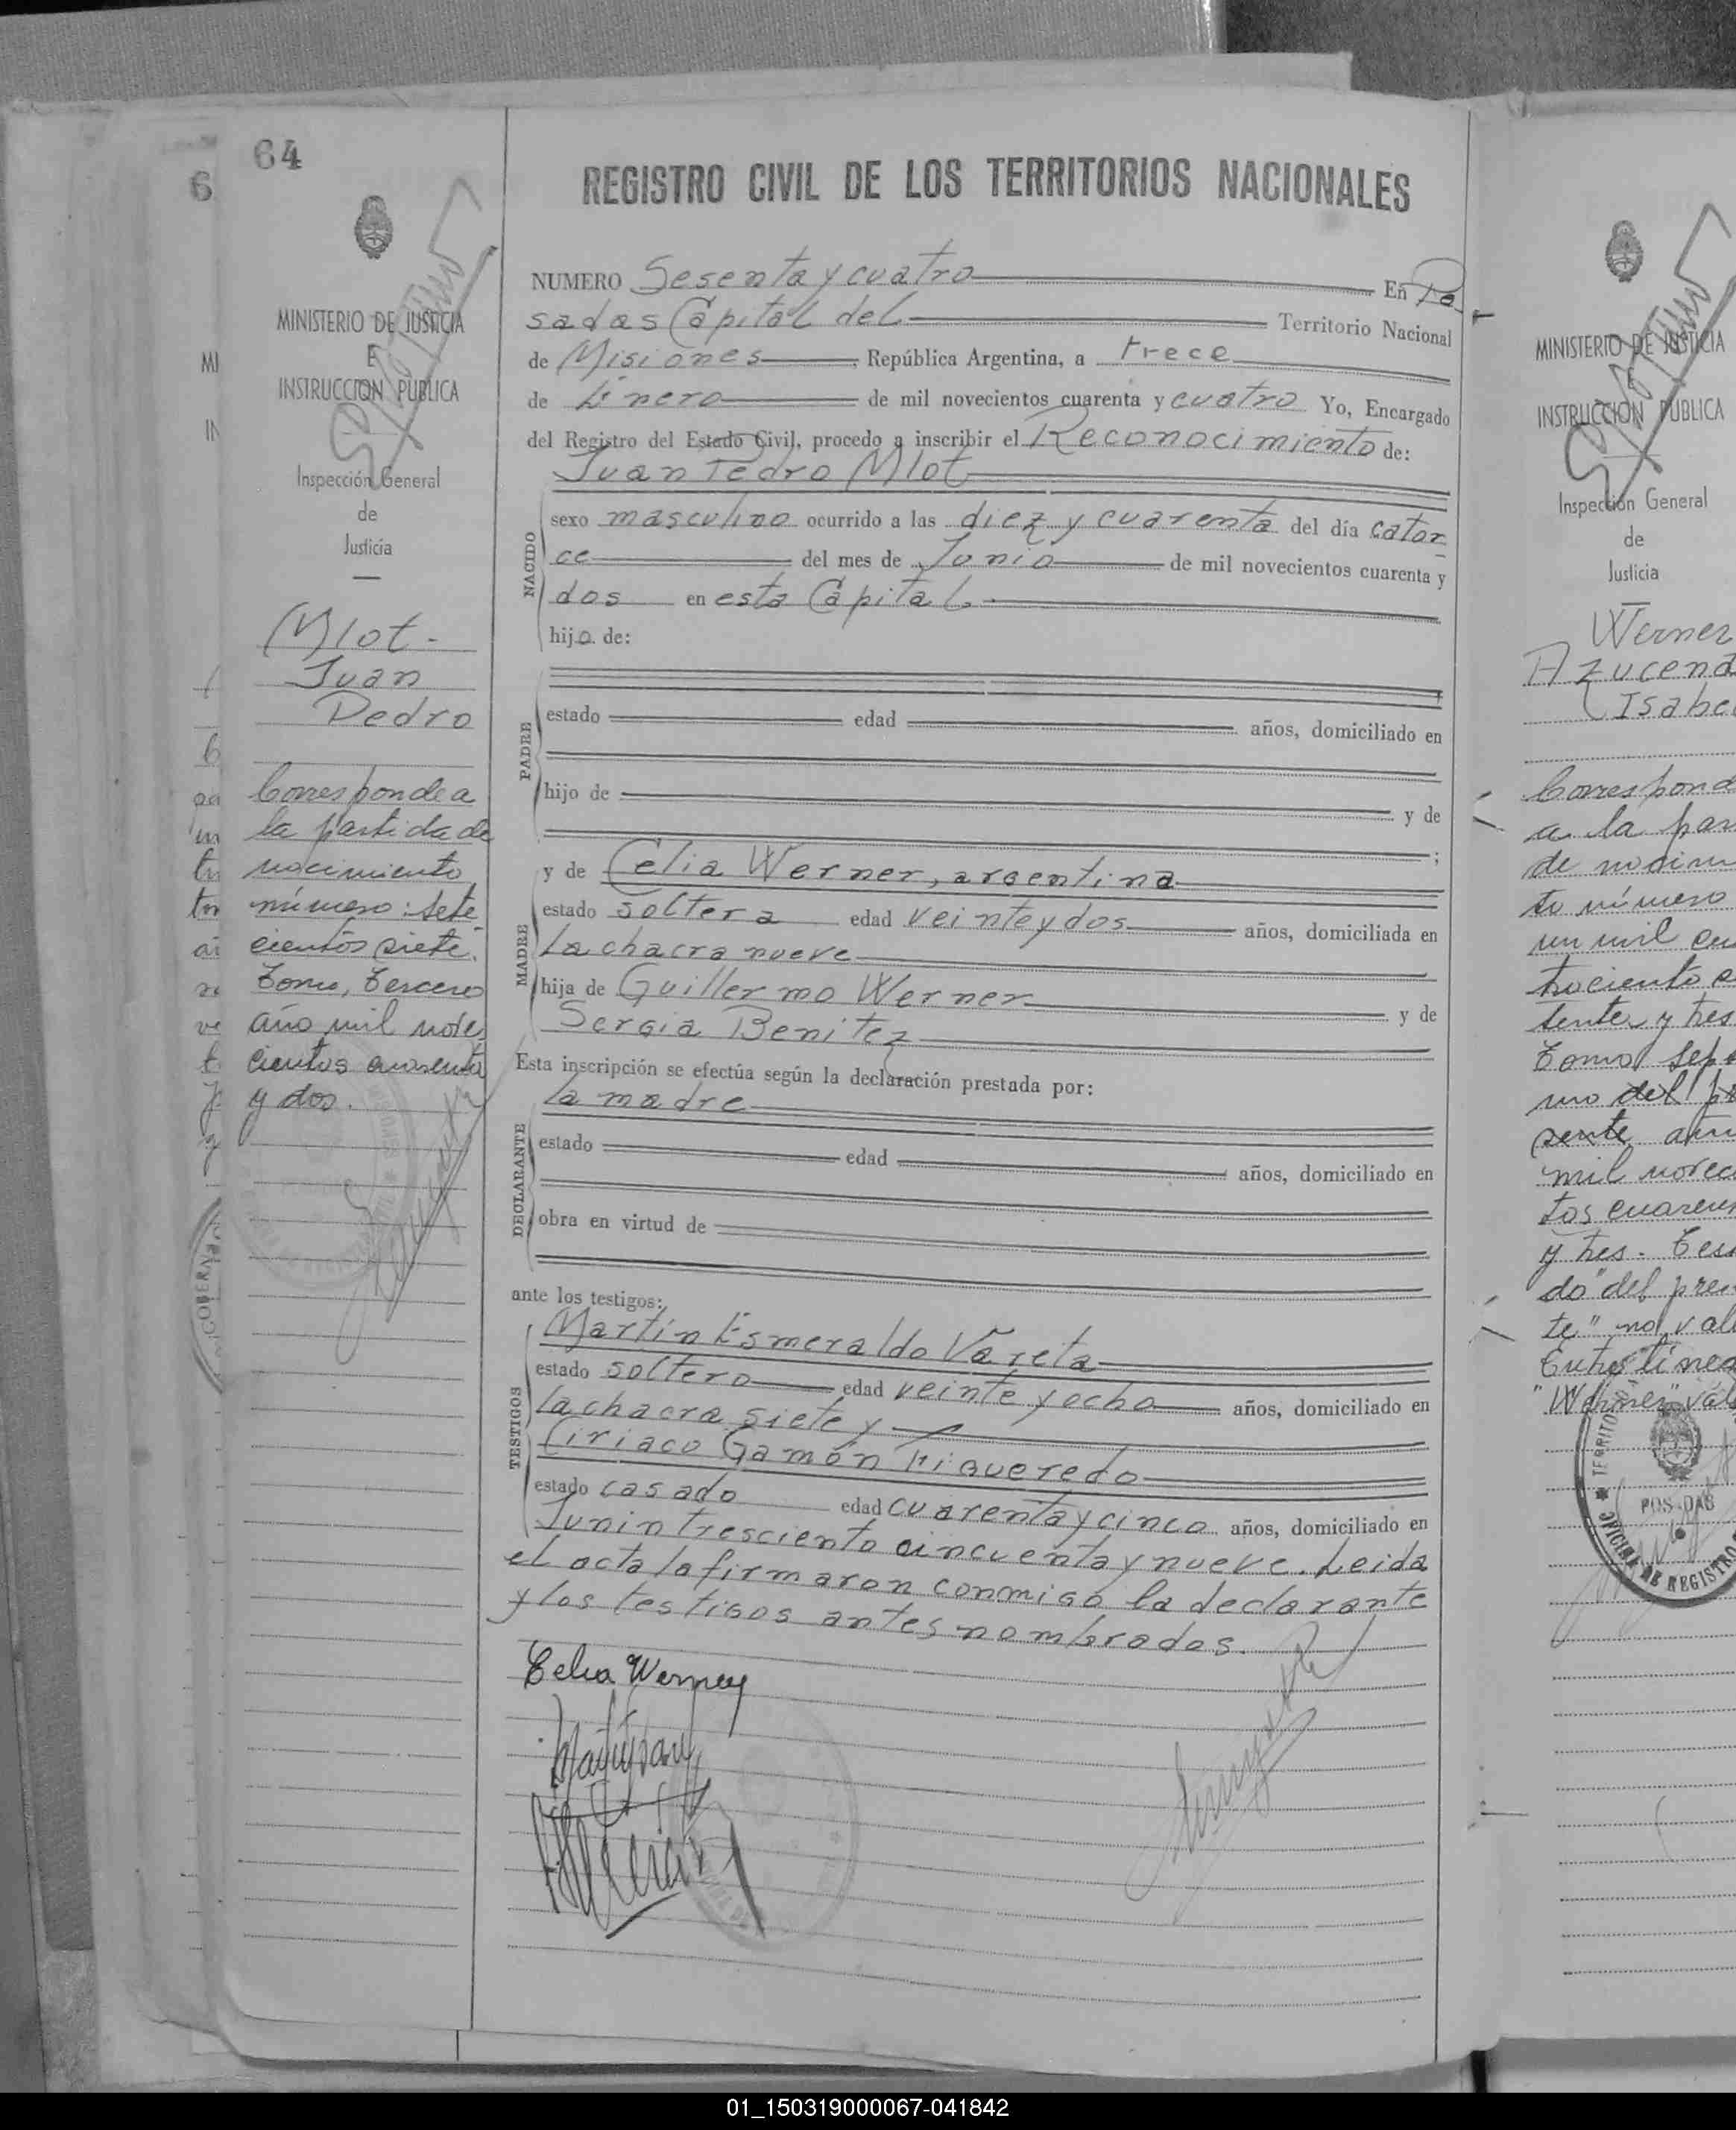 64
REGISTRO CIVIL DE LOS TERRITORIOS NACIONALES
MINISTERIO DE JUSTICIA
E
INSTRUCCION PUBLICA
Inspección General
de
Justicia
Mlot.
Juan
Pedro
Corresponde a
la partida de
nacimiento
número: sete
cientos siete.
Tomo, Tercero
año mil nove
cientos cuarenta
y dos.
NUMERO Sesenta y cuatro En Po
sadas Capital del Territorio Nacional
de Misiones República Argentina, a trece
de Enero de mil novecientos cuarenta y cuatro Yo, Encargado
del Registro del Estado Civil, procedo a inscribir el Reconocimiento de:
Juan Pedro Mlot
NACIDO
sexo masculino ocurrido a las diez y cuarenta del día cator
ce del mes de Junio de mil novecientos cuarenta y
dos en esta Capital.
hijo de:
PADRE
estado edad años, domiciliado en
hijo de y de
;
MADRE
y de Celia Werner, argentina
estado soltera edad veinte y dos años, domiciliada en
La chacra nueve
hija de Guillermo Werner y de
Sergia Benitez
Esta inscripción se efectúa según la declaración prestada por:
La madre
DECLARANTE
estado edad años, domiciliado en
obra en virtud de
ante los testigos:
TESTIGOS
Martín Esmeraldo Varela
estado soltero edad veinte y ocho años, domiciliado en
la chacra siete y
Ciriaco Gamón Figueredo
estado casado edad cuarenta y cinco años, domiciliado en
Junin tresciento cincuenta y nueve. Leida
el acta la firmaron conmigo la declarante
y los testigos antes nombrados.
Celia Werner
MINISTERIO DE JUSTICIA
E
INSTRUCCION PUBLICA
Inspección General
de
Justicia
Werner
Azucena
Isabel
Corresponde
a la par
to número
un mil cu
Tomo sep
mo del pre
sente
mil novec
tos cuaren
y tres.
do "del pren
te" no val
Entre linea
"Werner" vale
01_150319000067-041842